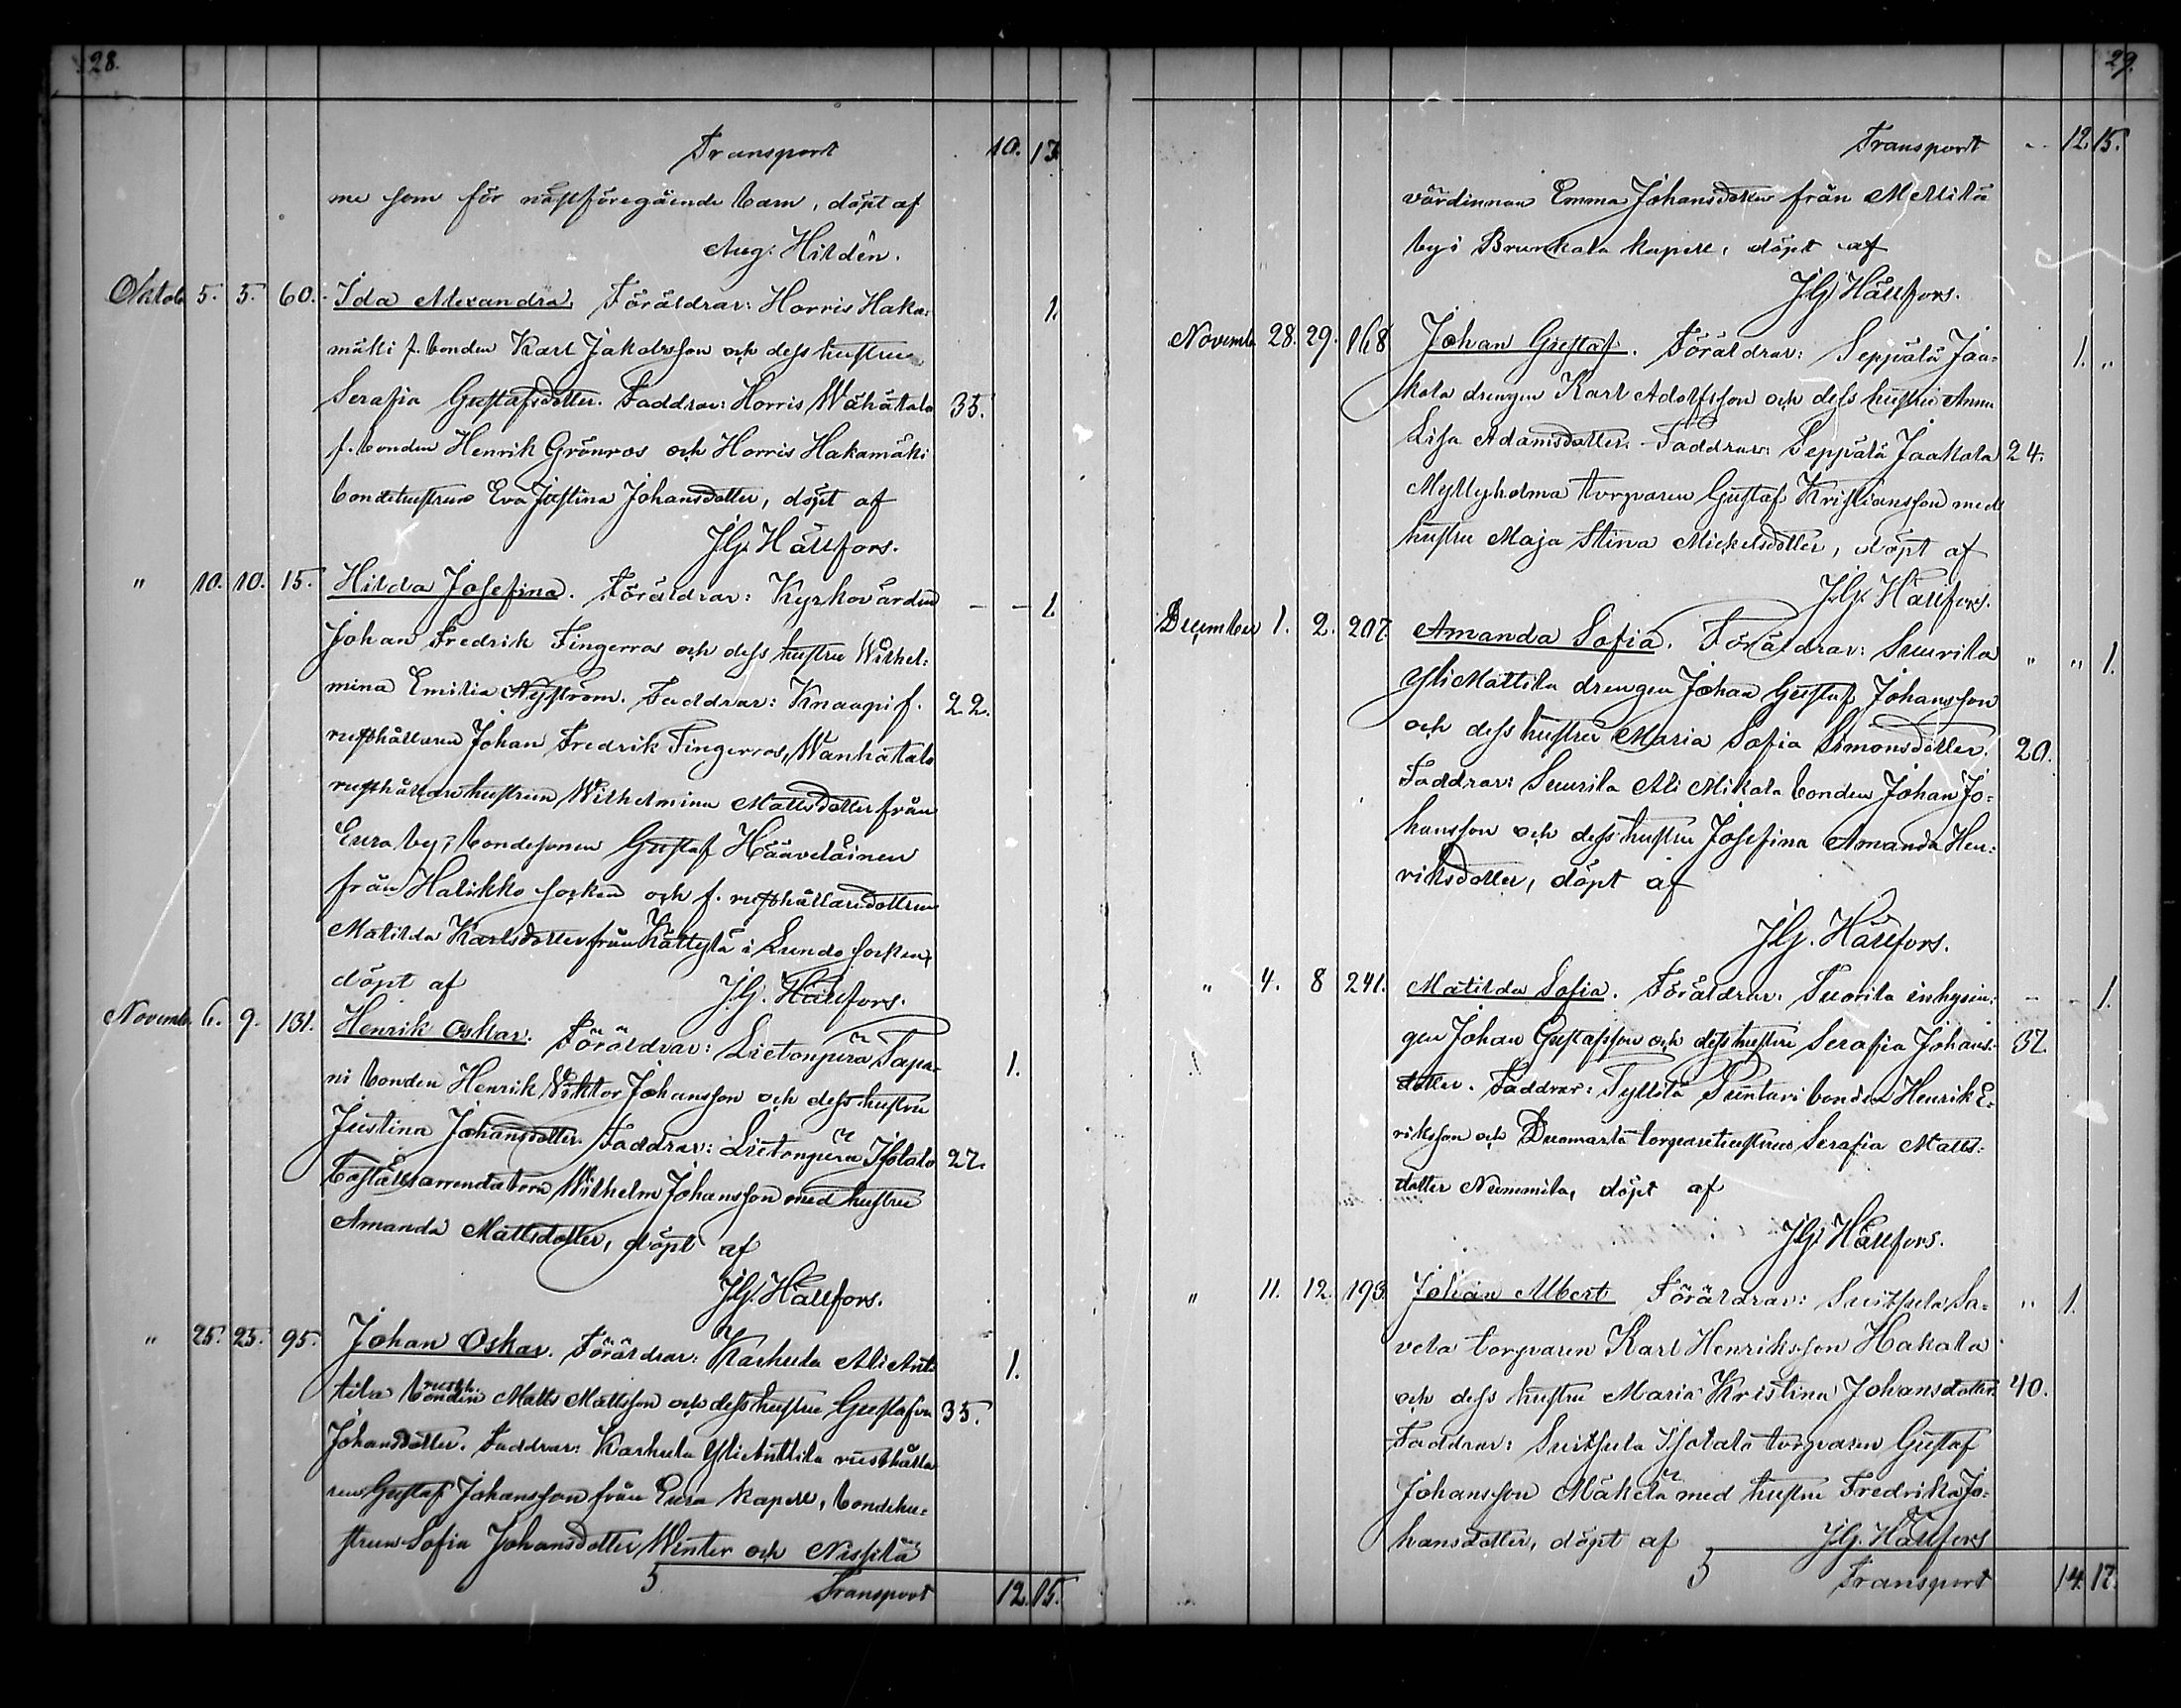 28.
Transport 10. 13
me som för nästföregående barn, döpt af
Aug. Hildén.
Oktob. 5. 5. 60. Ida Alexandra. Föräldrar: Horris Haka- 1.
mäki f. bonden Karl Jakobsson och dess hustru
Serafia Gustafsdotter. Faddrar: Horris Wähätalo 35.
f. bonden Henrik Grönroos och Horris Hakamäki
bondehustrun Eva Justina Johansdotter, döpt af
J.G. Hällfors.
" 10. 10. 15. Hilda Josefina. Föräldrar: Kyrkovärden - - 1.
Johan Fredrik Fingerroos och dess hustru Wilhel-
mina Emilia Nyström. Faddrar: Knaapi f. 22.
rusthållaren Johan Fredrik Fingerroos, Wanhatalo
rusthållarehustrun Wilhelmina Mattsdotter från
Eura by; bondesonen Gustaf Häävelainen
från Halikko socken och f. rusthållaredottren
Matilda Karlsdotter från Kättylä i Lundo socken,
döpt af J.G. Hällfors.
Novemb. 6. 9. 131. Henrik Oskar. Föräldrar: Lietonperä Tapa- 1.
ni bonden Henrik Wiktor Johansson och dess hustru
Justina Johansdotter. Faddrar: Lietonperä Isotalo 27.
boställsarrendatorn Wilhelm Johansson med hustru
Amanda Mattsdotter, döpt af
J.G. Hällfors.
" 25. 25. 95. Johan Oskar. Föräldrar: Karhula Ali Ant- 1.
rusth.
tila bonden Matts Mattsson och dess hustru Gustafva 35.
Johansdotter. Faddrar: Karhula Yli Anttila rusthålla
ren Gustaf Johansson från Eura kapell, bondehu-
strun Sofia Johansdotter Winter och Nissilä
5 Transport 12. 15.
29.
Transport - 12. 15.
värdinnan Emma Johansdotter från Mellilä
by i Brunkala kapell, döpt af
J.G. Hällfors.
Novemb. 28. 29. 168 Johan Gustaf. Föräldrar: Seppälä Jaa- 1. "
kola drengen Karl Adolfsson och dess hustru Anna
Lisa Adamsdotter. Faddrar: Seppälä Jaakola 24.
Myllyholma torparen Gustaf Kristiansson med
hustru Maja Stina Mickelsdotter, döpt af
J.G. Hällfors.
December 1. 2. 207. Amanda Sofia. Föräldrar: Suurila " " 1.
Yli Mattila drengen Johan Gustaf Johansson
och dess hustru Maria Sofia Simonsdotter. 20.
Faddrar: Suurila Ali Mikola bonden Johan Jo-
hansson och dess hustru Josefina Amanda Hen-
riksdotter, döpt af
J.G. Hällfors.
" 4. 8 241. Matilda Sofia. Föräldrar: inhysin- - - 1.
gen Johan Gustafsson och dess hustru Serafia Johans- 32
dotter. Faddrar: Tyllilä Puntari bonden Henrik E-
riksson och torparehustrun Serafia Matts-
dotter Nummila, döpt af
J.G. Hällfors.
" 11. 12. 193. Johan Albert Föräldrar: Suitsula Sa- " 1.
vela torparen Karl Henriksson Hakala
och dess hustru Maria Kristina Johansdotter. 40.
Faddrar: Suitsula Isotalo torparen Gustaf
Johansson Mäkelä med hustru Fredrika Jo-
hansdotter, döpt af J.G. Hällfors
5 Transport 14. 17.